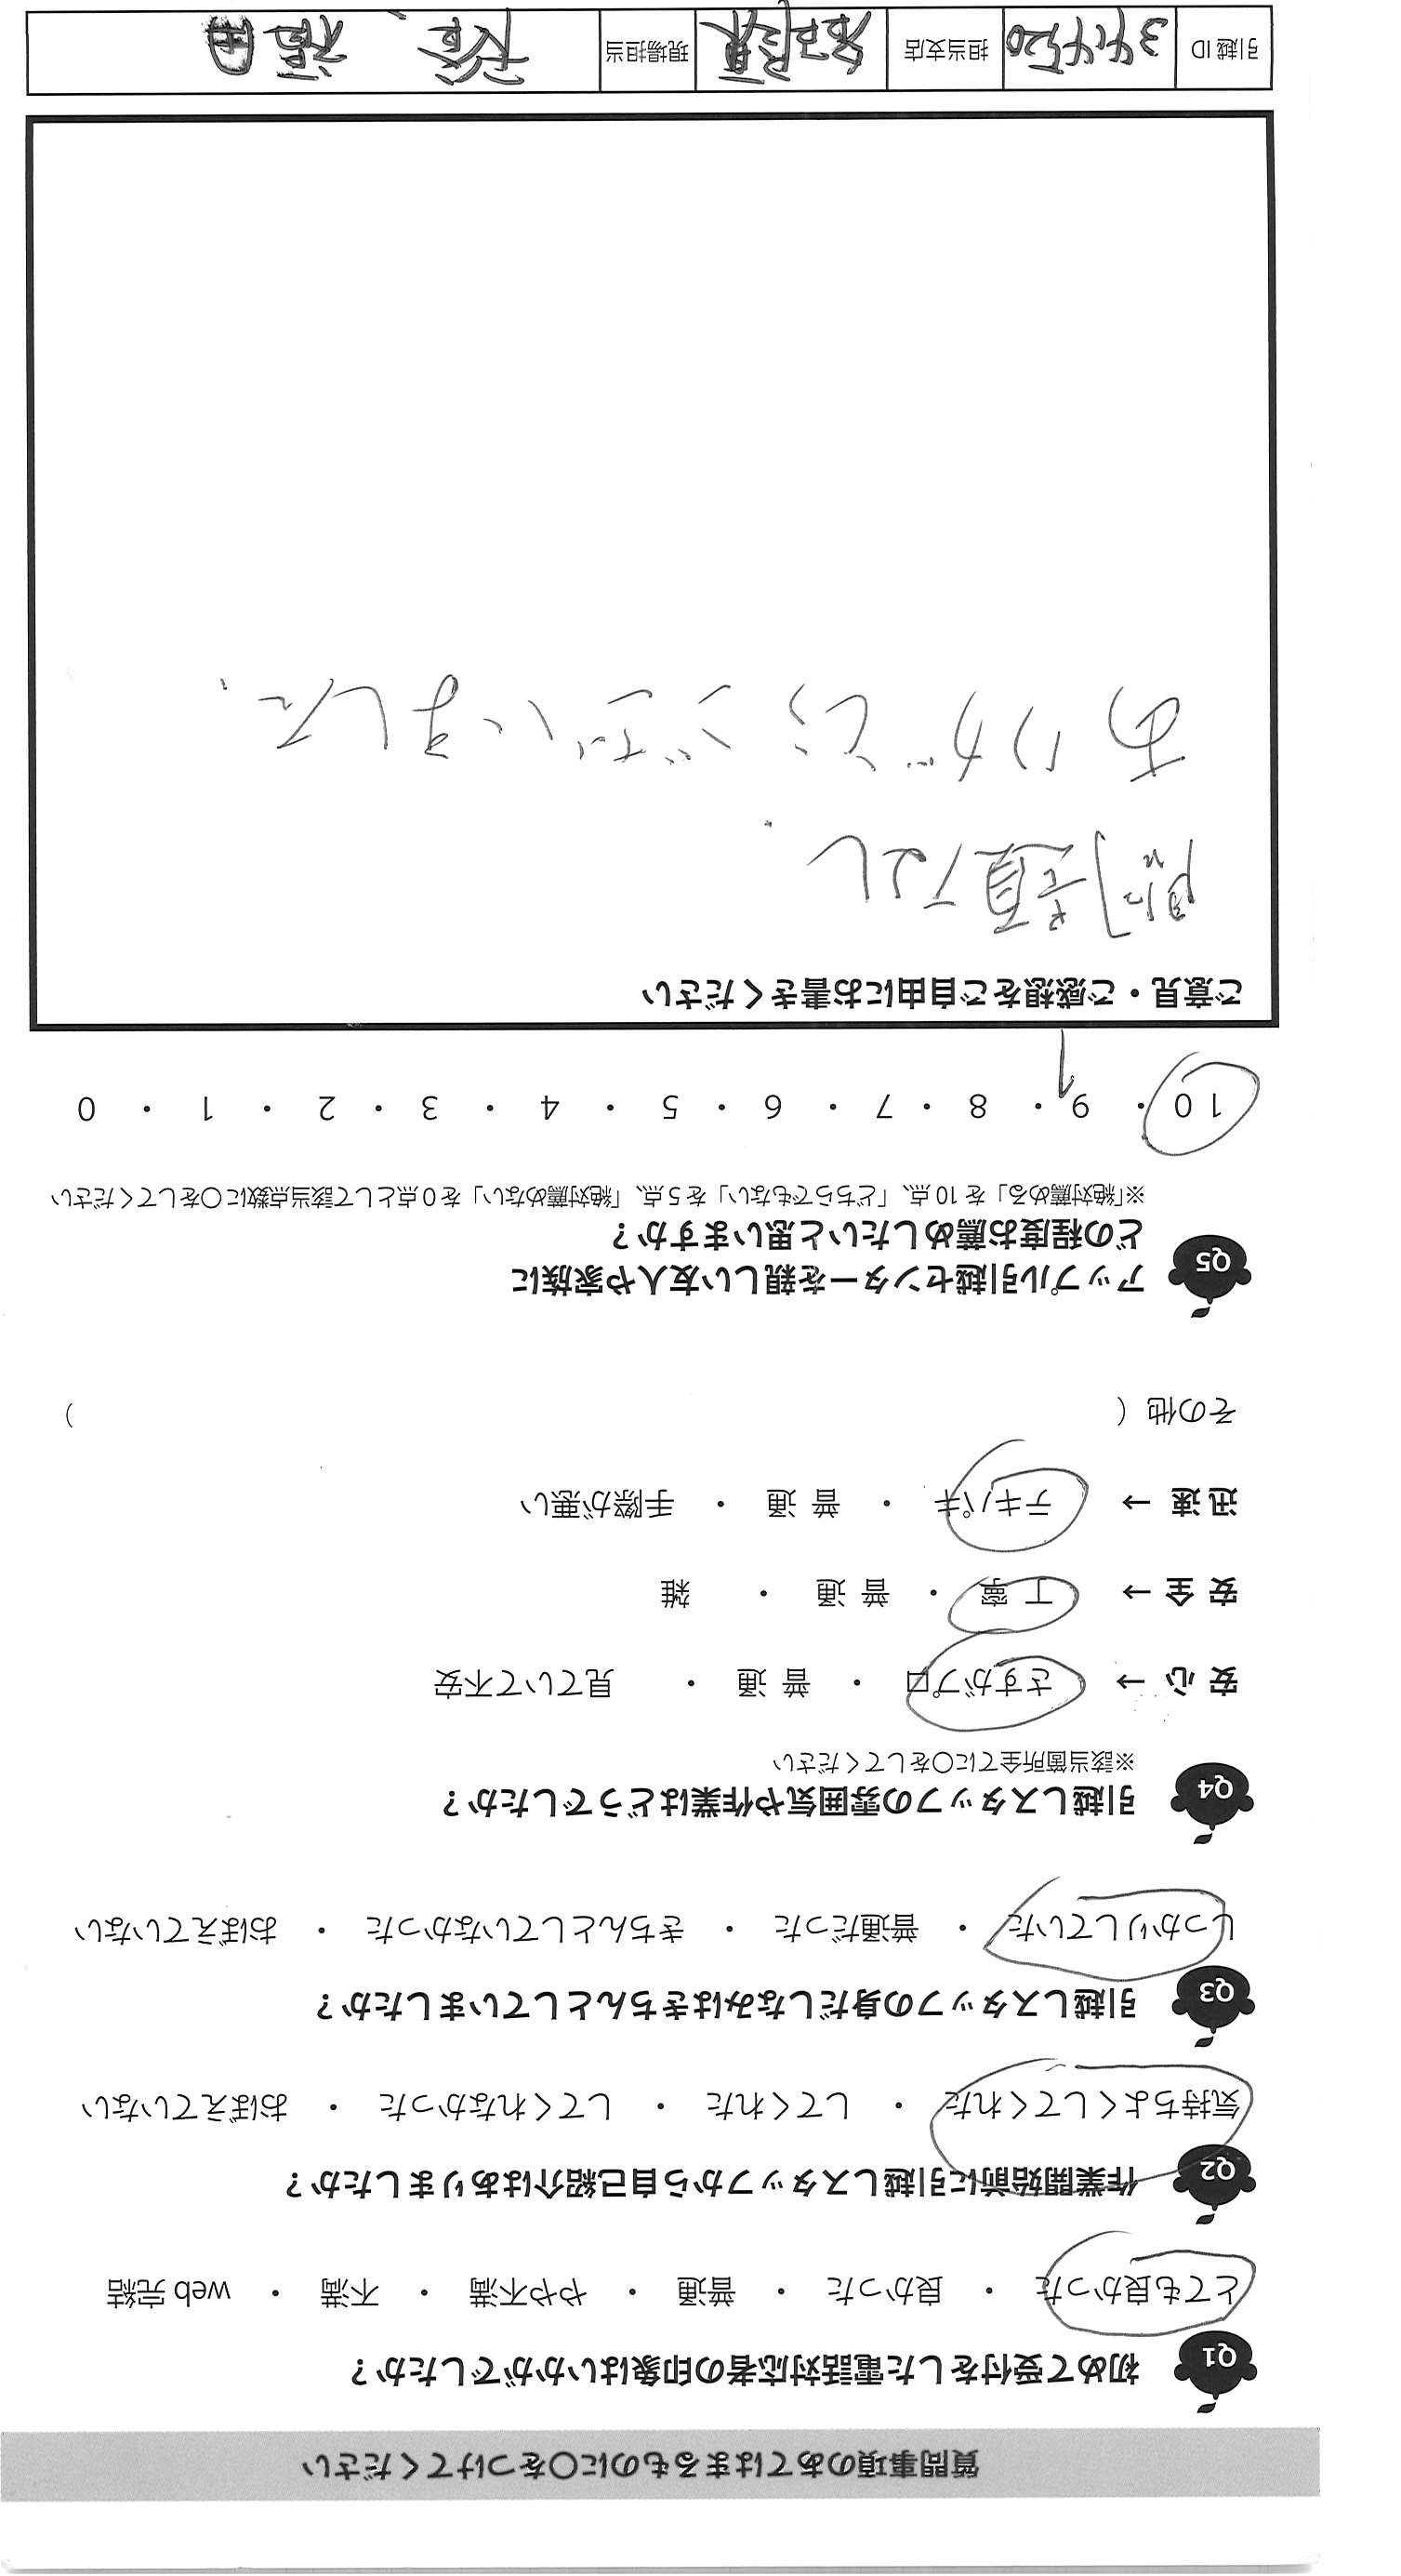 質問事項のあてはまるものに〇をつけてください
Q1 初めて受付をした電話対応者の印象はいかがでしたか？
とても良かった ・ 良かった ・ 普通 ・ やや不満 ・ 不満 ・ web 完結
Q2 作業開始前に引越しスタッフから自己紹介はありましたか？
気持ちよくしてくれた ・ してくれた ・ してくれなかった ・ おぼえていない
Q3 引越しスタッフの身だしなみはきちんとしていましたか？
しっかりしていた ・ 普通だった ・ きちんとしていなかった ・ おぼえていない
Q4 引越しスタッフの雰囲気や作業はどうでしたか？
※該当箇所全てに〇をしてください
安 心 → さすがプロ ・ 普 通 ・ 見ていて不安
安 全 → 丁 寧 ・ 普 通 ・ 雑
迅 速 → テキパキ ・ 普 通 ・ 手際が悪い
その他（ ）
Q5 アップル引越センターを親しい友人や家族に
どの程度お薦めしたいと思いますか？
※「絶対薦める」を 10 点、「どちらでもない」を 5 点、「絶対薦めない」を 0 点として該当点数に〇をしてください
10 ・ 9 ・ 8 ・ 7 ・ 6 ・ 5 ・ 4 ・ 3 ・ 2 ・ 1 ・ 0
ご意見・ご感想をご自由にお書きください
問題なし.
ありがとうございました.
引越 ID 3414520 担当支店 現場担当 福田